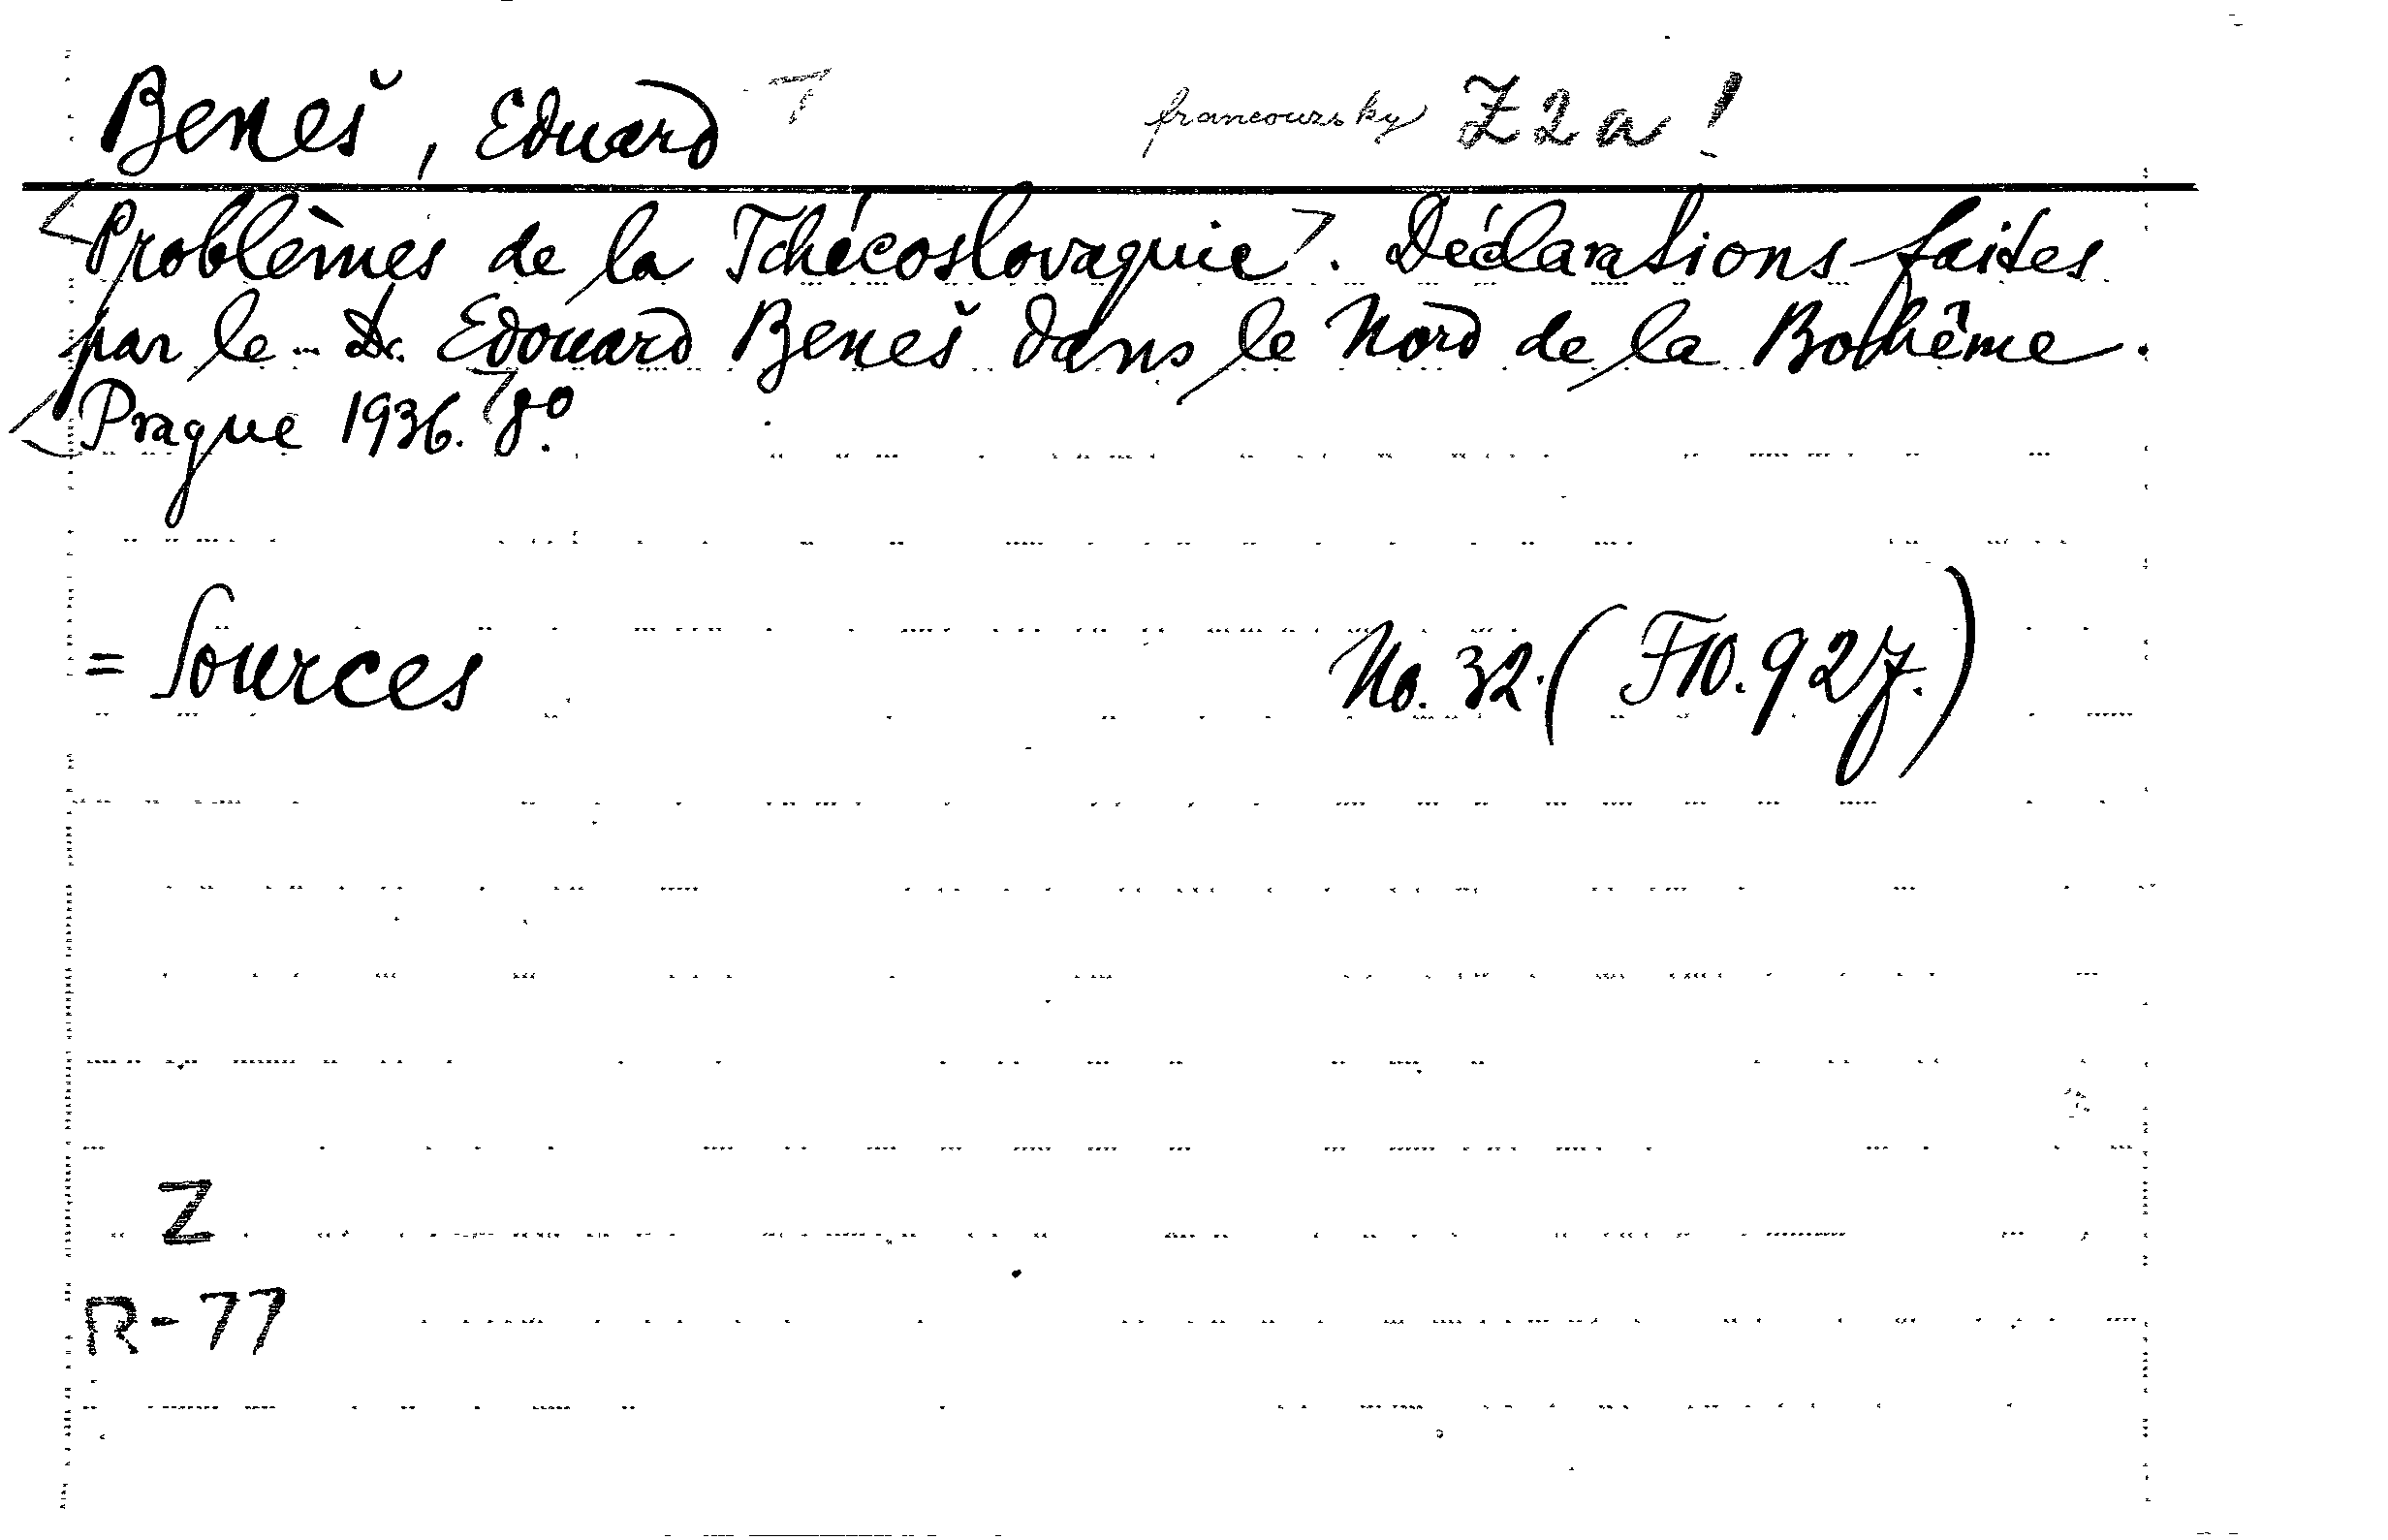 Beneš, Eduard francouzsky Z2a!
Problèmes de la Tchécoslovaquie. Déclarations faites
par le Dr. Edouard Beneš dans le Nord de la Bohême.
Prague 1936. 8º.
= Sources No. 32. (F10.927.)
Z
R-77